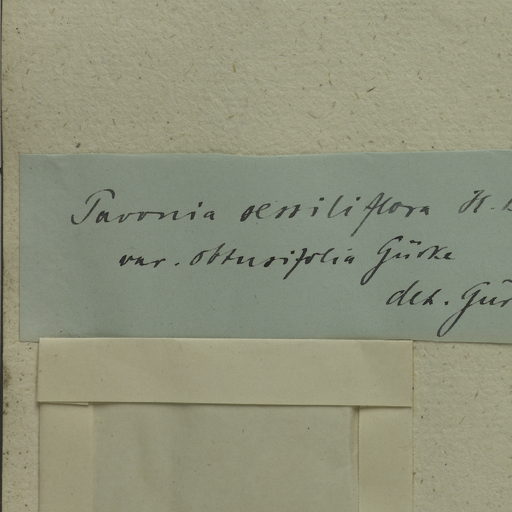 Pavonia sessiliflora H.
var. obtusifolia Gürke
det. Gür